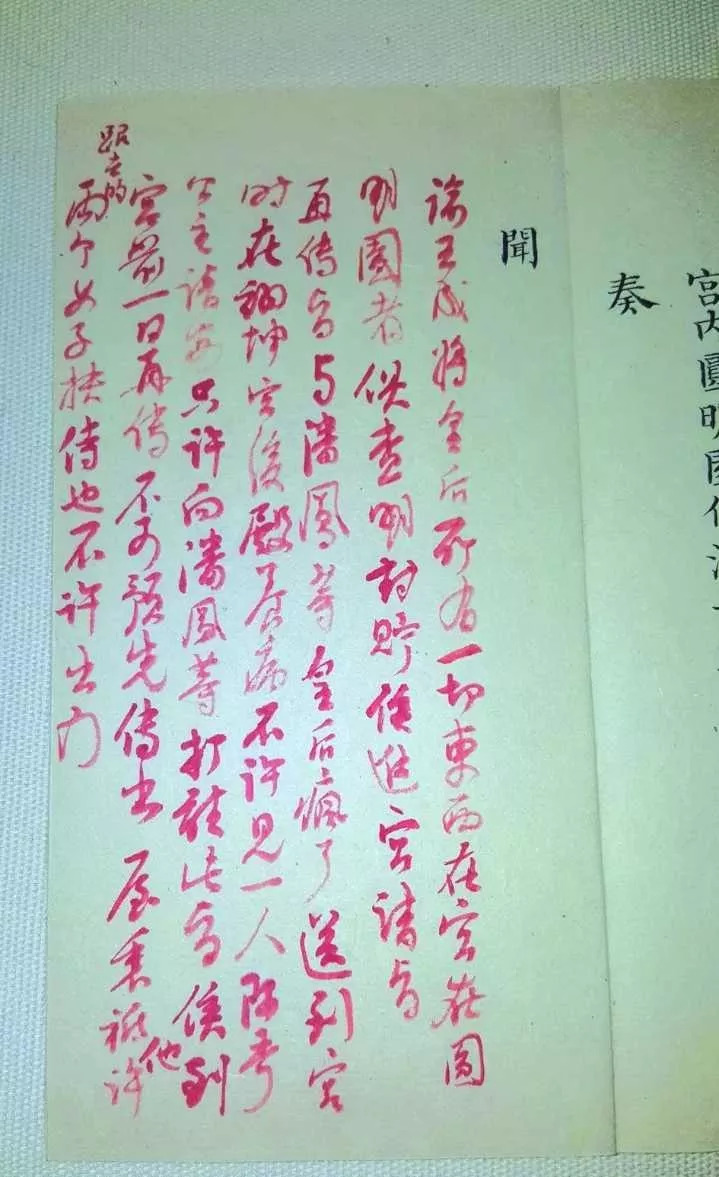 宮內圓明園
奏
聞
諭王成將皇后所有一切東西在宮在圓
明園者俱查明封貯候進宮請旨
再傳旨與潘鳳等皇后瘋了送到宮
時在翊坤宮後殿養病不許見一人阿哥
公主請安只許向潘鳳等打聽此旨俟到
宮前一日再傳不可預先傳出屋裏祗許他
跟去的兩个女子扶侍也不許出门